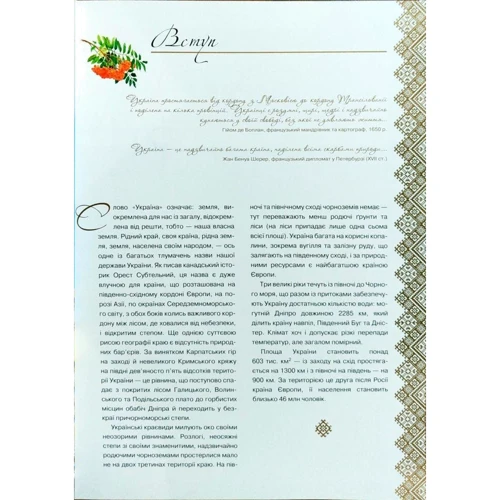 Вступ
Україна простягається від кордону з Московією до кордону Трансільванії
Гійом де Боплан, французький мандрівник та картограф, 1650 р.
Україна — це надзвичайно багата країна, наділена всіма скарбами природи...
Жан Бенуа Шерер, французький дипломат у Петербурзі (XVII ст.)
Слово «Україна» означає: земля, ви-
окремлена для нас із загалу, відокрем-
лена від решти, тобто — наша власна
земля. Рідний край, своя країна, рідна зем-
ля, земля, населена своїм народом, — ось
одне із багатьох тлумачень назви нашої
держави України. Як писав канадський істо-
рик Орест Субтельний, ця назва є дуже
влучною для країни, що розташована на
південно-східному кордоні Європи, на по-
розі Азії, по окраїнах Середземноморсько-
го світу, з обох боків колись важливого кордо-
ну між лісом, де ховалися від небезпеки,
і відкритим степом. Ще однією суттєвою
рисою географії краю є відсутність природ-
них бар'єрів. За винятком Карпатських гір
на заході й невеликого Кримського кряжу
на півдні дев'яносто п'ять відсотків територ
ії України — це рівнина, що поступово спа-
дає з покритих лісом Галицького, Волин-
ського та Подільського плато до горбистих
місцин обабіч Дніпра й переходить у без-
краї причорноморські степи.
Українські краєвиди милують око своїми
неозорими рівнинами. Розлогі, неосяжні
степи зі своїми знаменитими, надзвичайно
родючими чорноземами простерлися мало
не на двох третинах території краю. На пів-
ночі та північному сході чорноземів немає —
тут переважають менш родючі ґрунти та
ліси (на ліси припадає лише одна сьома
всієї площі). Україна багата на корисні копа-
лини, зокрема вугілля та залізну руду, що
залягають на південному сході, і за природ-
ними ресурсами є найбагатшою країною
Європи.
Три великі ріки течуть із півночі до Чорно-
го моря, що разом із притоками забезпечу-
ють Україну достатньою кількістю води: мо-
гутній Дніпро довжиною 2285 км, який
ділить країну навпіл, Південний Буг та Дніс-
тер. Клімат хоч і допускає різкі перепади
температур, але загалом помірний.
Площа України становить понад
603 тис. км² — із заходу на схід простяга-
ється на 1300 км і з півночі на південь — на
900 км. За територією це друга після Росії
країна Європи, її населення становить
близько 46 млн чоловік.